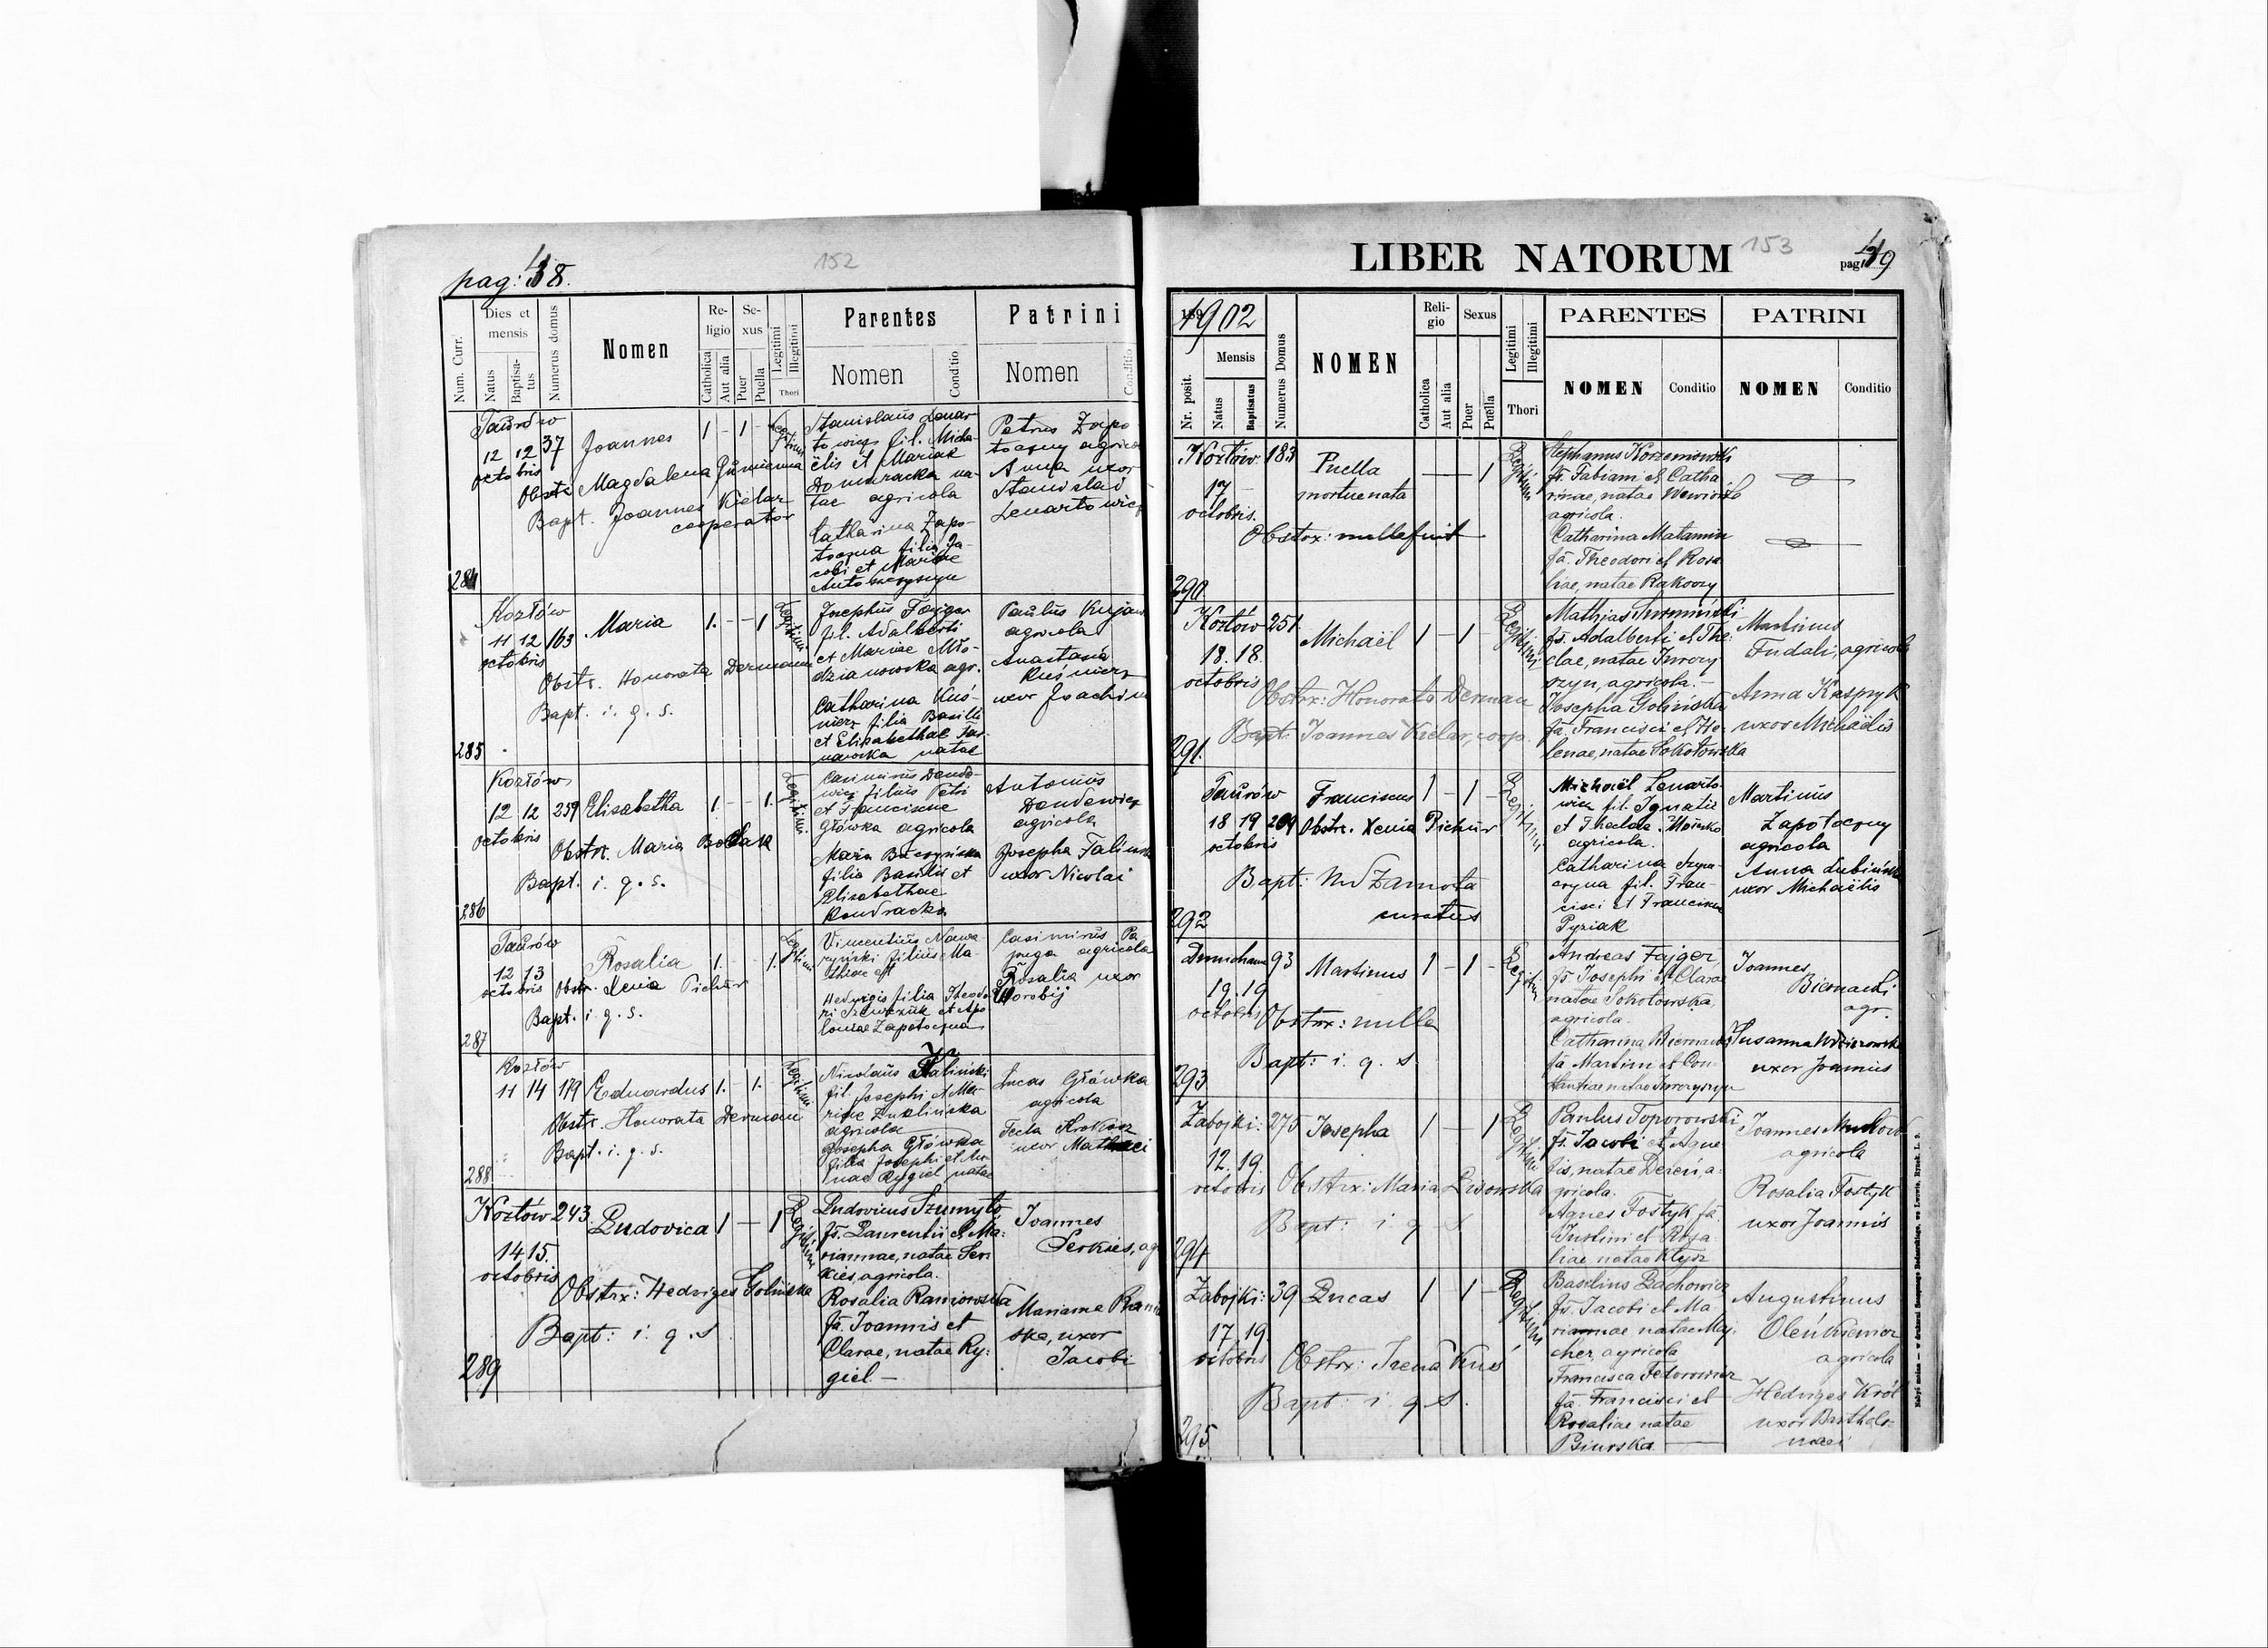 pag: 48.
152
Num. Curr.
Dies et mensis
Natus
Baptisatus
Numerus domus
Nomen
Religio
Catholica
Aut alia
Sexus
Puer
Puella
Legitimi
Illegitimi
Thori
Parentes
Nomen
Conditio
Patrini
Nomen
Conditio
284
Taurów
12 12 37
octobris
Joannes
1 - 1 -
Legitimi
Obstr. Magdalena
Bapt. Joannes Kielar
cooperator
Stanislaus Lenar-
towicz fil. Micha-
ëlis et Mariae
Domaracka na-
tae agricola
Catharina Zapo-
toczna filia Ja-
cobi et Mariae
Petrus Zapo-
toczny agricola
Anna uxor
Stanislai
Lenartowicz
285
Kozłów
11 12 163
octobris
Maria
1. - - 1
Legitimi
Obstr. Honorata Derman
Bapt. i. q. s.
Josephus Fajger
fil. Adalberti
et Mariae Mło-
dzianowska agr.
Catharina Kuś-
nierz filia Basilii
et Elisabethae
natae
Paulus
agricola
Anastasia
Kuśnierz
uxor Joachim
286
Kozłów
12 12 259
octobris
Elisabetha
1. - - 1.
Legitimi
Obstr. Maria
Bapt. i. q. s.
Casimirus Dende-
wicz filius Petri
et Franciscae
Główka agricola
Maria Baczyńska
filia Basilii et
Elisabethae
Kondracka
Antonius
Dendewicz
agricola
Josepha
uxor Nicolai
287
Taurów
12 13
octobris
Rosalia
1. - - 1.
Legitimi
Obstr. Xenia Pichur
Bapt. i q. s.
Vincentius
filius Ma-
thiae et
Hedvigis filia Theodo-
ri Szewczuk et Apo-
loniae Zapotoczna
Casimirus Pa-
agricola
Rosalia uxor
Worobij
288
Kozłów
11 14 179
Eduardus
1. - 1. -
Legitimi
Obstr. Honorata Derman
Bapt. i. q. s.
Nicolaus
fil. Josephi et Ma-
riae
agricola
Josepha Główka
filia Josephi et An-
nae Rygiel natae
Lucas Główka
agricola
Tecla
uxor Mathaei
289
Kozłów 243
14 15.
octobris
Ludovica
1 - 1
Legitimi
Obstrx: Hedviges Golińska
Bapt: i. q. s
Ludovicus Szumyło
fs. Laurentii et Ma-
riannae, natae Ser-
kies, agricola.
Rosalia Raniowska
fa. Joannis et
Clarae, natae Ry-
giel. —
Joannes
Serkies, ag
Marianna
ska, uxor
Jacobi
LIBER NATORUM
153
pag. 49
1902
Nr. posit.
Mensis
Natus
Baptisatus
Numerus Domus
NOMEN
Religio
Catholica
Aut alia
Sexus
Puer
Puella
Legitimi
Illegitimi
Thori
PARENTES
NOMEN
Conditio
PATRINI
NOMEN
Conditio
290
Kozłów 183
17 —
octobris.
Puella
mortue nata
— — 1
Legitimi
Obstrx: nulla fuit
Stephanus Korzeniowski
fs. Fabiani et Catha-
rinae, natae
agricola.
Catharina
fa. Theodori et Rosa-
liae, natae Rakoczy
291.
Kozłów 251
18. 18.
octobris
Michaël
1 - 1 -
Legitimi
Obstrx: Honorata Derman
Bapt: Joannes Kielar, coop.
Mathias
fs. Adalberti et The-
clae, natae
agricola. —
Josepha Golińska
fa. Francisci et He-
lenae, natae Sokołowska
Martinus
Fudali, agricola
Anna Kaspryk
uxor Michaëlis
292
Taurów
18 19 209
octobris
Franciscus
1 - 1 -
Legitimi
Obstr. Xenia Pichur
Bapt: Zamorta
curatus
Michaël Lenarto-
wicz fil. Ignatii
et Theclae
agricola.
Catharina
fil. Fran-
cisci et Francisca
Pyziak
Martinus
Zapotoczny
agricola
Anna Lubińska
uxor Michaëlis
293
93
19. 19
octobris
Martinus
1 - 1 -
Legitimi
Obstrx: nulla
Bapt: i. q. s
Andreas Fajger,
fs. Josephi et Clarae
natae Sokołowska,
agricola.
Catharina Biernacki
fa Martini et Con-
stantiae natae
Joannes
Biernacki
agr.
Susanna
uxor Joannis
294
Zabojki: 275
12. 19.
octobris
Josepha
1 — 1
Legitimi
Obstrx: Maria Lisowska
Bapt: i q S
Paulus Toporowski
fs. Jacobi et Agne-
tis, natae Dereń, a-
gricola.
Agnes Fostyk fa.
Justini et Rosa-
liae natae
Joannes
agricola
Rosalia Fostyk
uxor Joannis
295
Zabojki: 39
17. 19.
octobris
Lucas
1 1 -
Legitimi
Obstrx: Irena Kuś
Bapt: i q S.
Basilius Lachowicz
fs. Jacobi et Ma-
riannae natae Maj-
cher, agricola
Francisca Fedorowicz
fa. Francisci et
Rosaliae natae
Biurska
Augustinus
Oleńkiewicz
agricola
Hedviges Król
uxor Bartholo-
maei